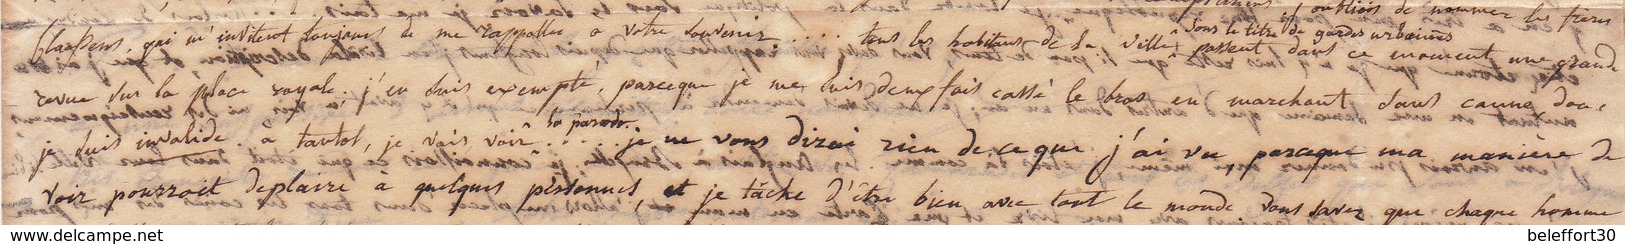 oubliois de nommer les frères
qui m'invitent toujours de me rappeller a votre souvenir. . . . . tous les habitans de la ville
sous le titre de gardes urbaines
passent dans ce moment une grande
revue sur la place royale. j'en suis exempté, parceque je me suis deux fois cassé le bras en marchant sans canne, donc
je suis invalide. à tantôt, je vais voir la parade. . . . . . je ne vous dirai rien de ce que j'ai vu, parceque ma manière de
voir pourroit deplaire à quelques personnes, et je tâche d'être bien avec tout le monde. vous savez que chaque homme
delcampe.net
beleffort30